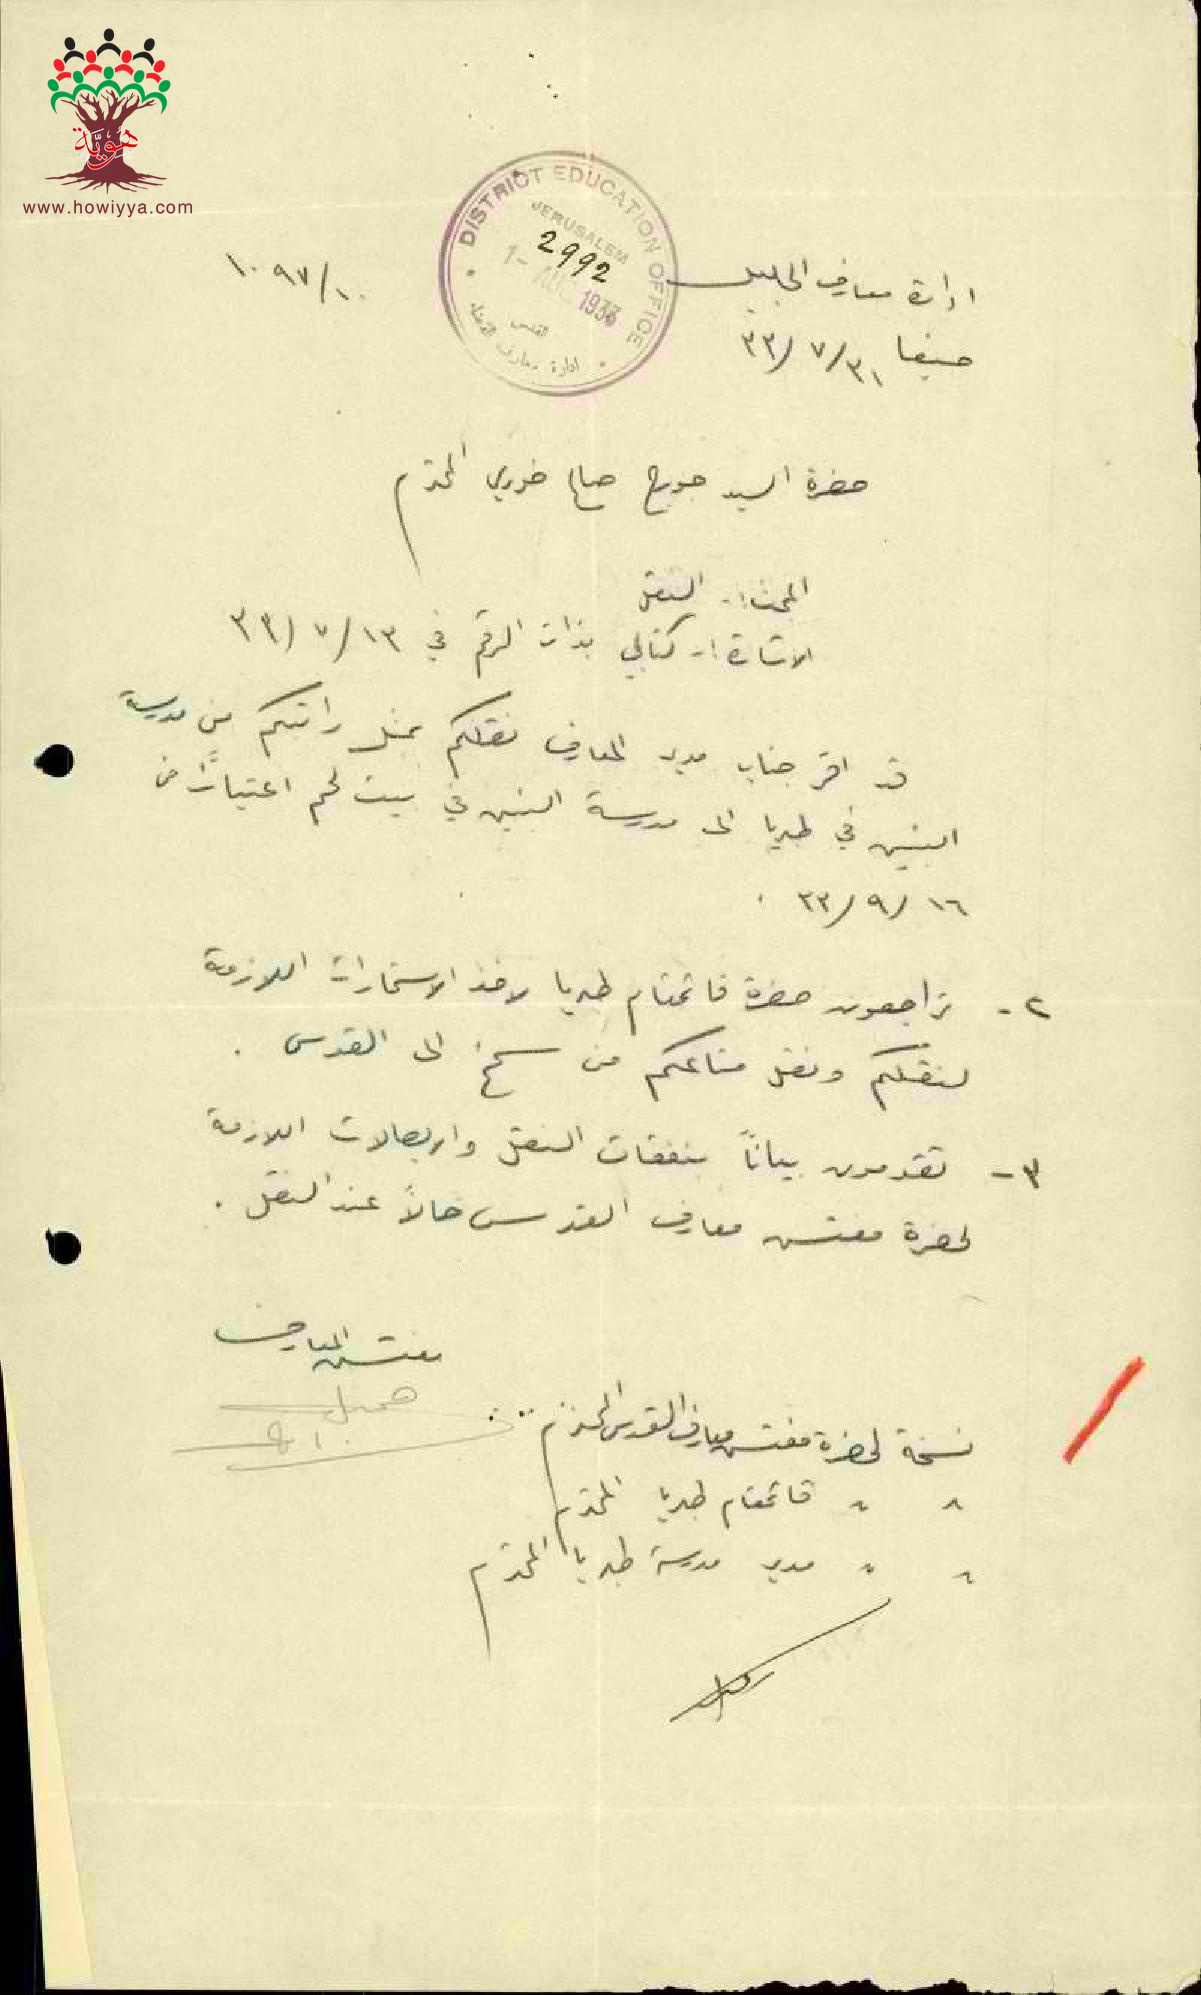 هوية
www.howiyya.com
DISTRICT EDUCATION OFFICE
JERUSALEM
2992
1- 1933
القدس
ادارة معارف
ادارة معارف الجليل
١٠٩٧/١٠
حيفا ٣١/٧/٣٣
حضرة السيد جورج صالح خوري المحترم
البحث :- النقل
الاشارة :- كتابي بذات الرقم في ١٣/٧/٣٣
قد اقر جناب مدير المعارف نقلكم بمثل راتبكم من مدرسة
البنين في طبريا الى مدرسة البنين في بيت لحم اعتباراً من
١٦/٩/٣٣ .
٢- تراجعون حضرة قائمقام طبريا لاخذ الاستمارات اللازمة
لنقلكم ونقل متاعكم من سمخ الى القدس .
٣- تقدمون بياناً بنفقات النقل والايصالات اللازمة
لحضرة مفتش معارف القدس حالاً عند النقل .
مفتش المعارف
نسخة لحضرة مفتش معارف القدس المحترم
" " قائمقام طبريا المحترم
" " مدير مدرسة طبريا المحترم